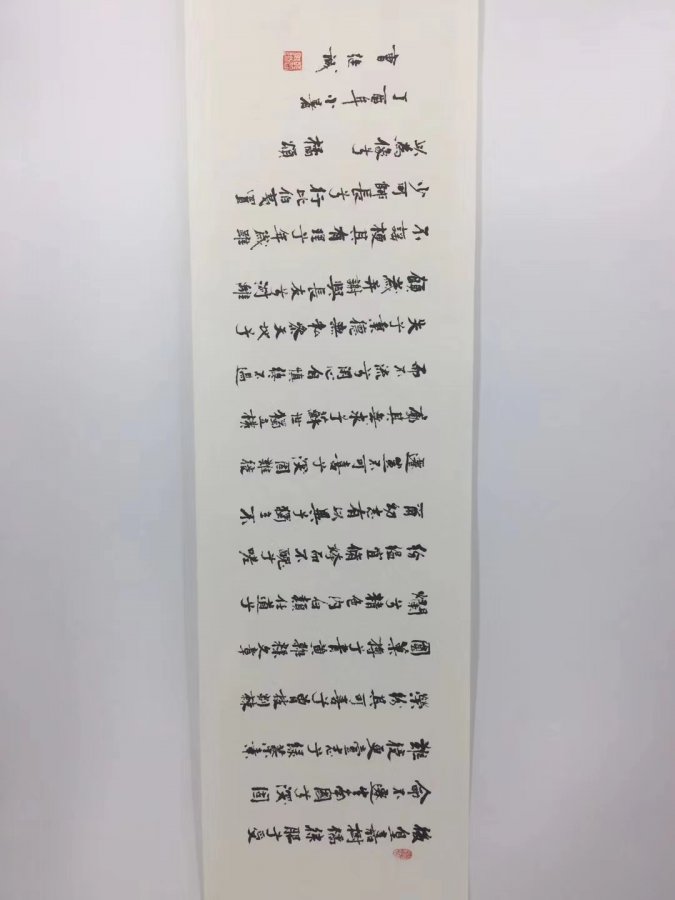 後皇嘉樹橘徠服兮受
命不遷生南國兮深固
難徙更壹志兮綠葉素
榮紛其可喜兮曾枝剡棘
圓菓摶兮青黃雜糅文章
爛兮精色內白類任道兮
紛縕宜脩姱而不醜兮嗟
爾幼志有以異兮獨立不
遷豈不可喜兮深固難徙
廓其無求兮蘇世獨立橫
而不流兮閉心自慎終不過
失兮秉德無私參天地兮
願歲并謝與長友兮淑離
不淫梗其有理兮年歲雖
少可師長兮行比伯夷置
以為像兮 橘頌
丁酉年小暑
曹 誠